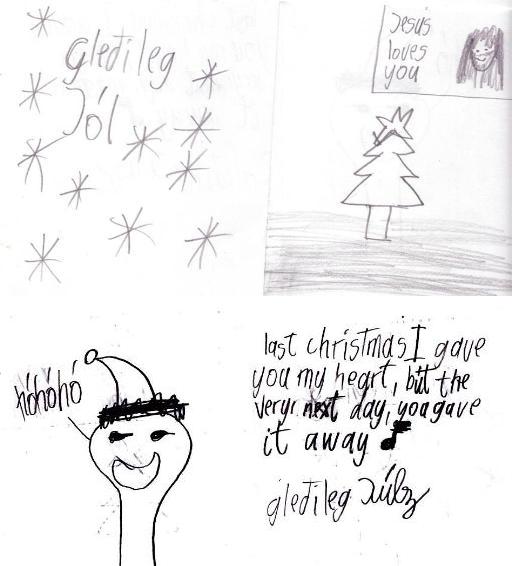 gleđileg
Jól
Jesús
loves
you
hóhóhó
last christmas I gave
you my heart, but the
veryr next day, you gave
it away
gleđileg